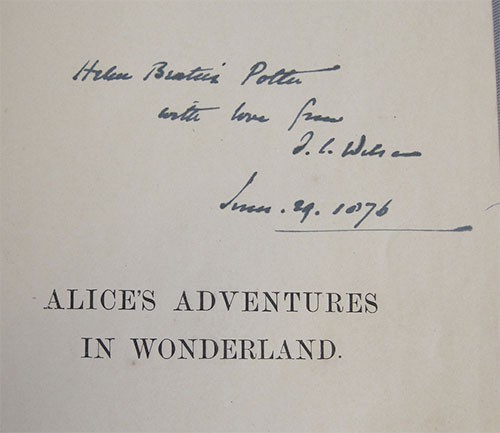 Helen Beatrix Potter
with love from
J. C. Wilson
June. 29. 1876
ALICE'S ADVENTURES
IN WONDERLAND.